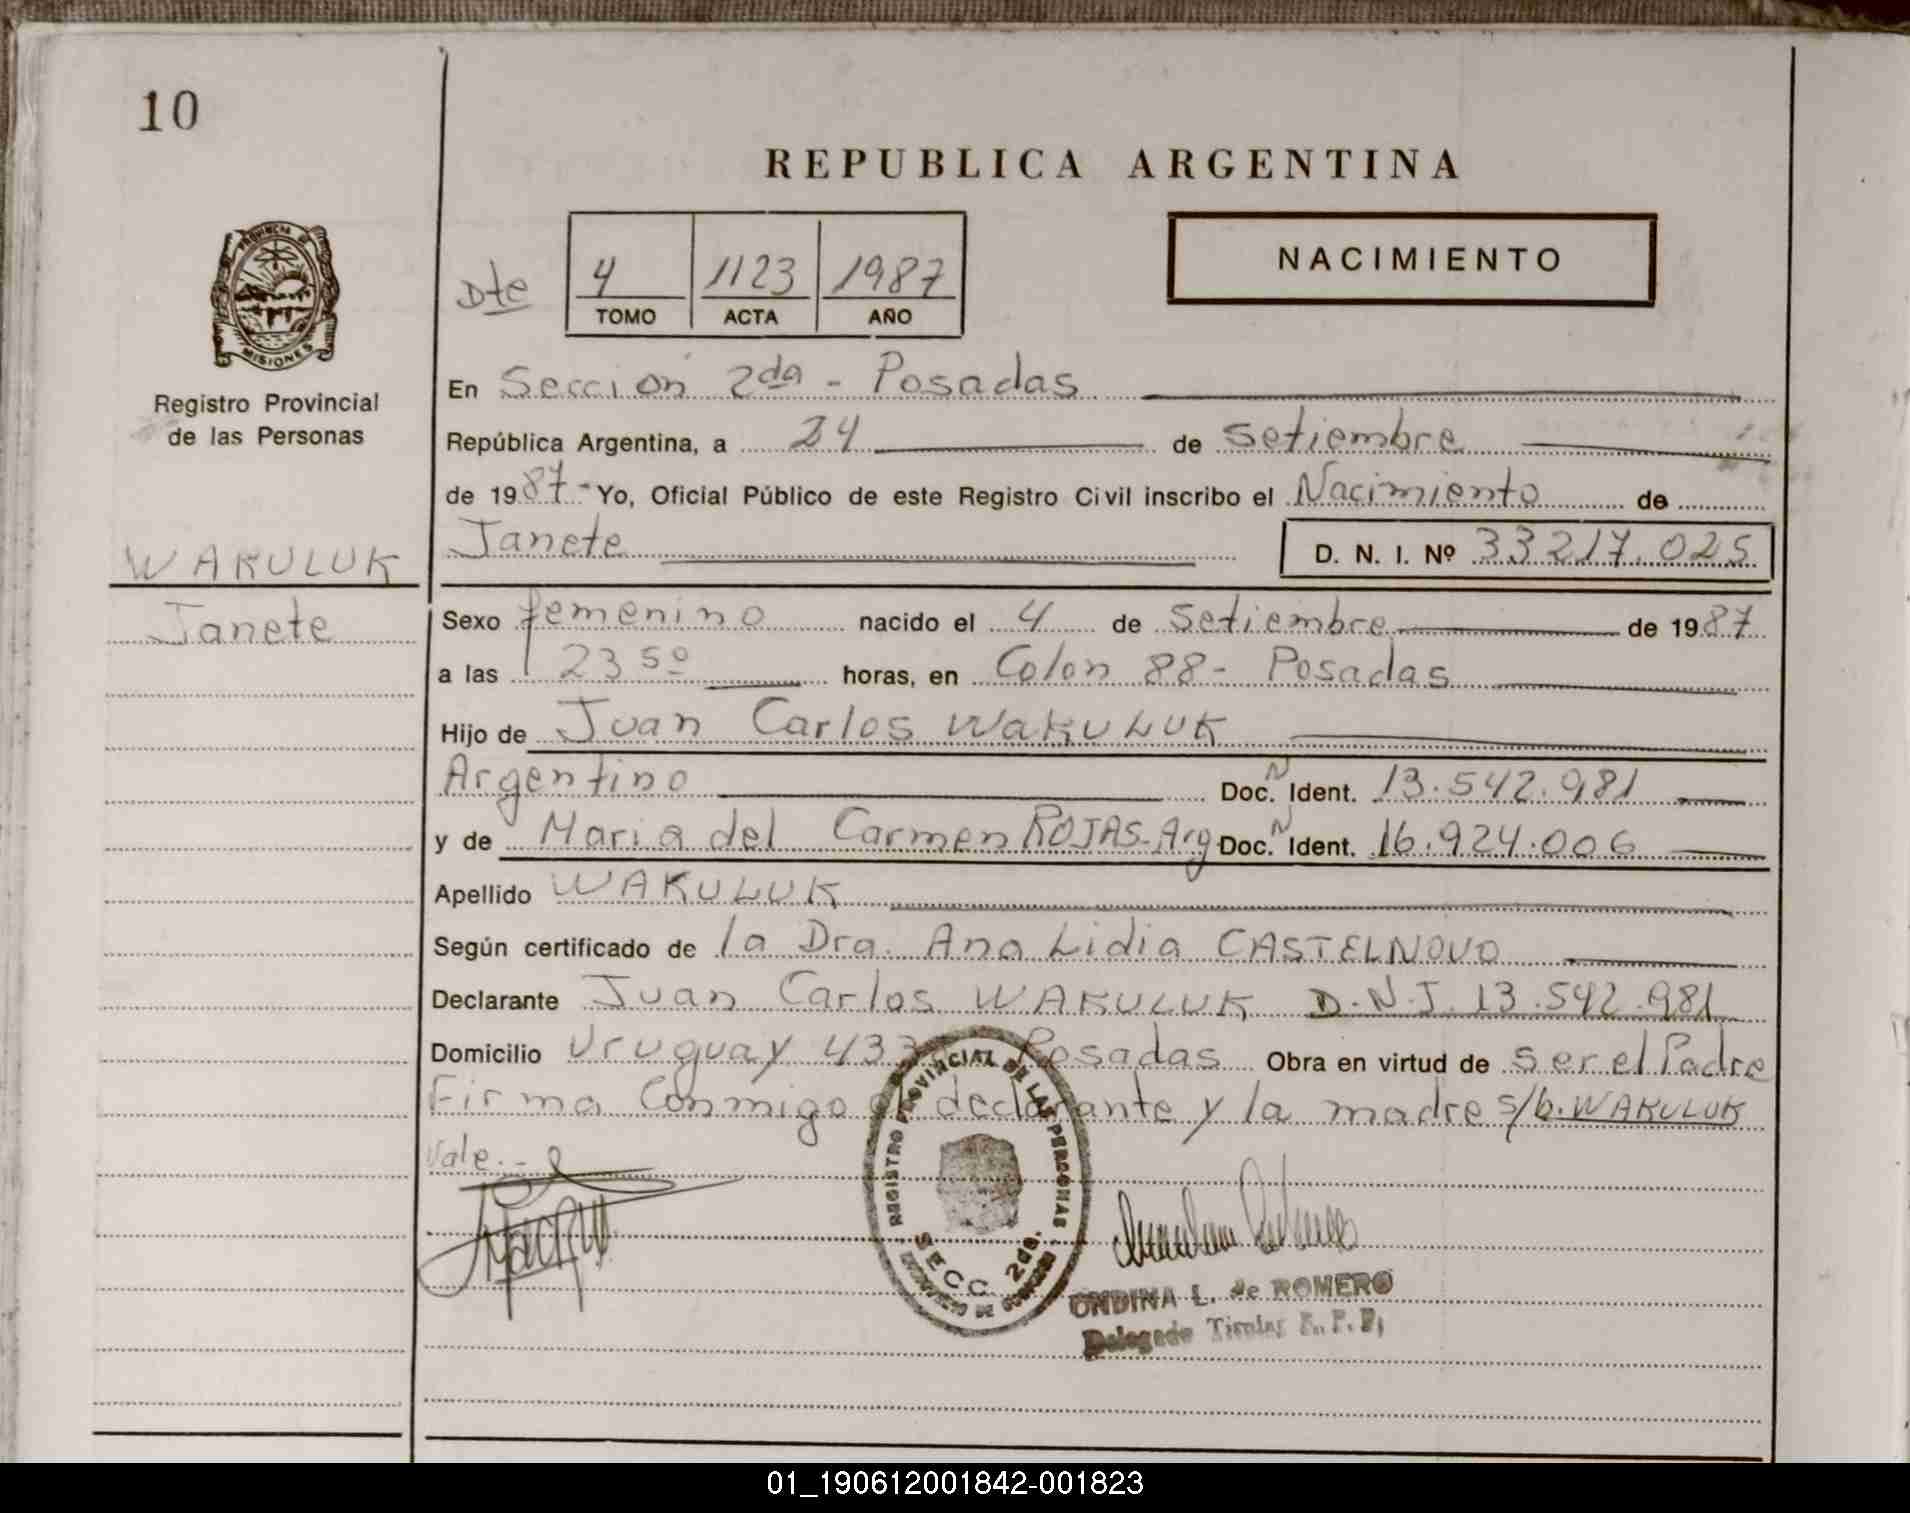 10
REPUBLICA ARGENTINA
PROVINCIA DE
MISIONES
Registro Provincial
de las Personas
Dte
4 1123 1987
TOMO ACTA AÑO
NACIMIENTO
En Sección 2da - Posadas
República Argentina, a 24 de Setiembre
de 1987 - Yo, Oficial Público de este Registro Civil inscribo el Nacimiento de
Janete D. N. I. Nº 33217.025
WAKULUK
Janete
Sexo femenino nacido el 4 de Setiembre de 1987
a las 23 50 horas, en Colon 88 - Posadas
Hijo de Juan Carlos WAKULUK
Argentino Doc. N Ident. 13.542.981
y de Maria del Carmen ROJAS-Arg Doc. N Ident. 16.924.006
Apellido WAKULUK
Según certificado de la Dra. Ana Lidia CASTELNOVO
Declarante Juan Carlos WAKULUK D.N.I. 13.542.981
Domicilio Uruguay Posadas Obra en virtud de ser el Padre
Firma Conmigo el declarante y la madre s/b. WAKULUK
Vale.-
REGISTRO PROVINCIAL DE LAS PERSONAS
SECC. 2da.
ONDINA L. de ROMERO
Delegado Titular R. P. P.
01_190612001842-001823